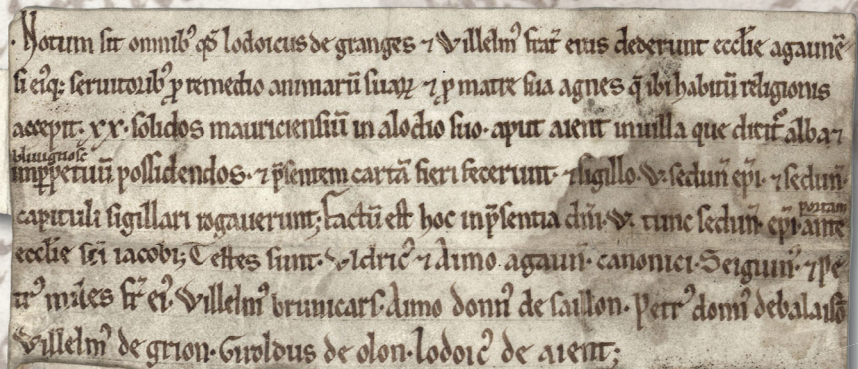 Notum sit omnibꝰ qđ lodoicus de granges ⁊ Willelmꝰ frat̾ eius dederunt ecclie agaunē
si eiꝰq; seruitoribꝰ ꝓ remedio animarū suaꝝ ⁊ ꝓ matre sua agnes q̄ ibi habitū religionis
accepit. xx. solidos mauriciensiū in alodio suo. aput aient in uilla que dicit̾ alba ⁊
bluuignosc
inꝑpetuū possidendos. ⁊ p̄sentem cartā fieri fecerunt. ⁊ sigillo. W. sedun̄ ep̄i. ⁊ sedun̄.
capituli sigillari rogauerunt; factū est hoc in p̄sentia dn̄i. W. tunc sedun̄ ep̄i. ante
portam
ecclie sc̄i iacobi; Testes sunt. Vldricꝰ ⁊ Aimo agaun̄. canonici. Seiguinꝰ. ⁊ Pe
trꝰ miles fr̄ eiꝰ. Willelmꝰ brunicars. Aimo donnꝰ de saillon. Petrꝰ donnꝰ de balaisō
Willelmꝰ de grion. Giroldus de olon. lodoicꝰ de aient;